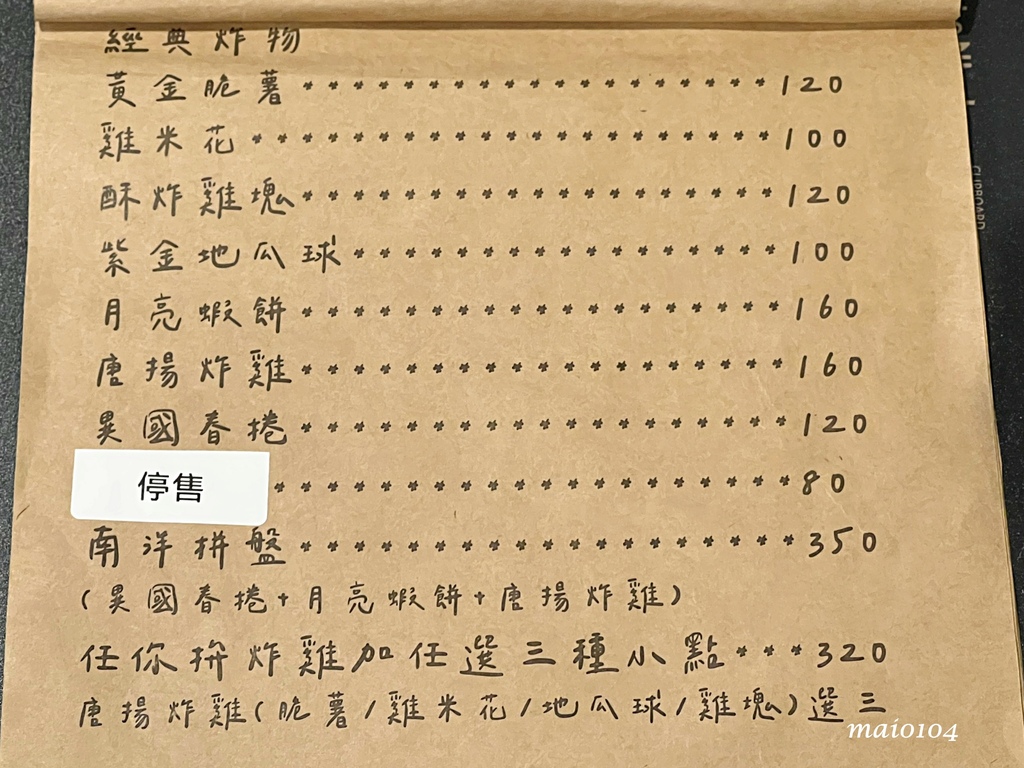 經典炸物
黃金脆薯 120
雞米花 100
酥炸雞塊 120
紫金地瓜球 100
月亮蝦餅 160
唐揚炸雞 160
異國春捲 120
停售 80
南洋拼盤 350
(異國春捲+月亮蝦餅+唐揚炸雞)
任你拚炸雞加任選三種小點 320
唐揚炸雞(脆薯/雞米花/地瓜球/雞塊)選三
maio104
CLIPBOARD